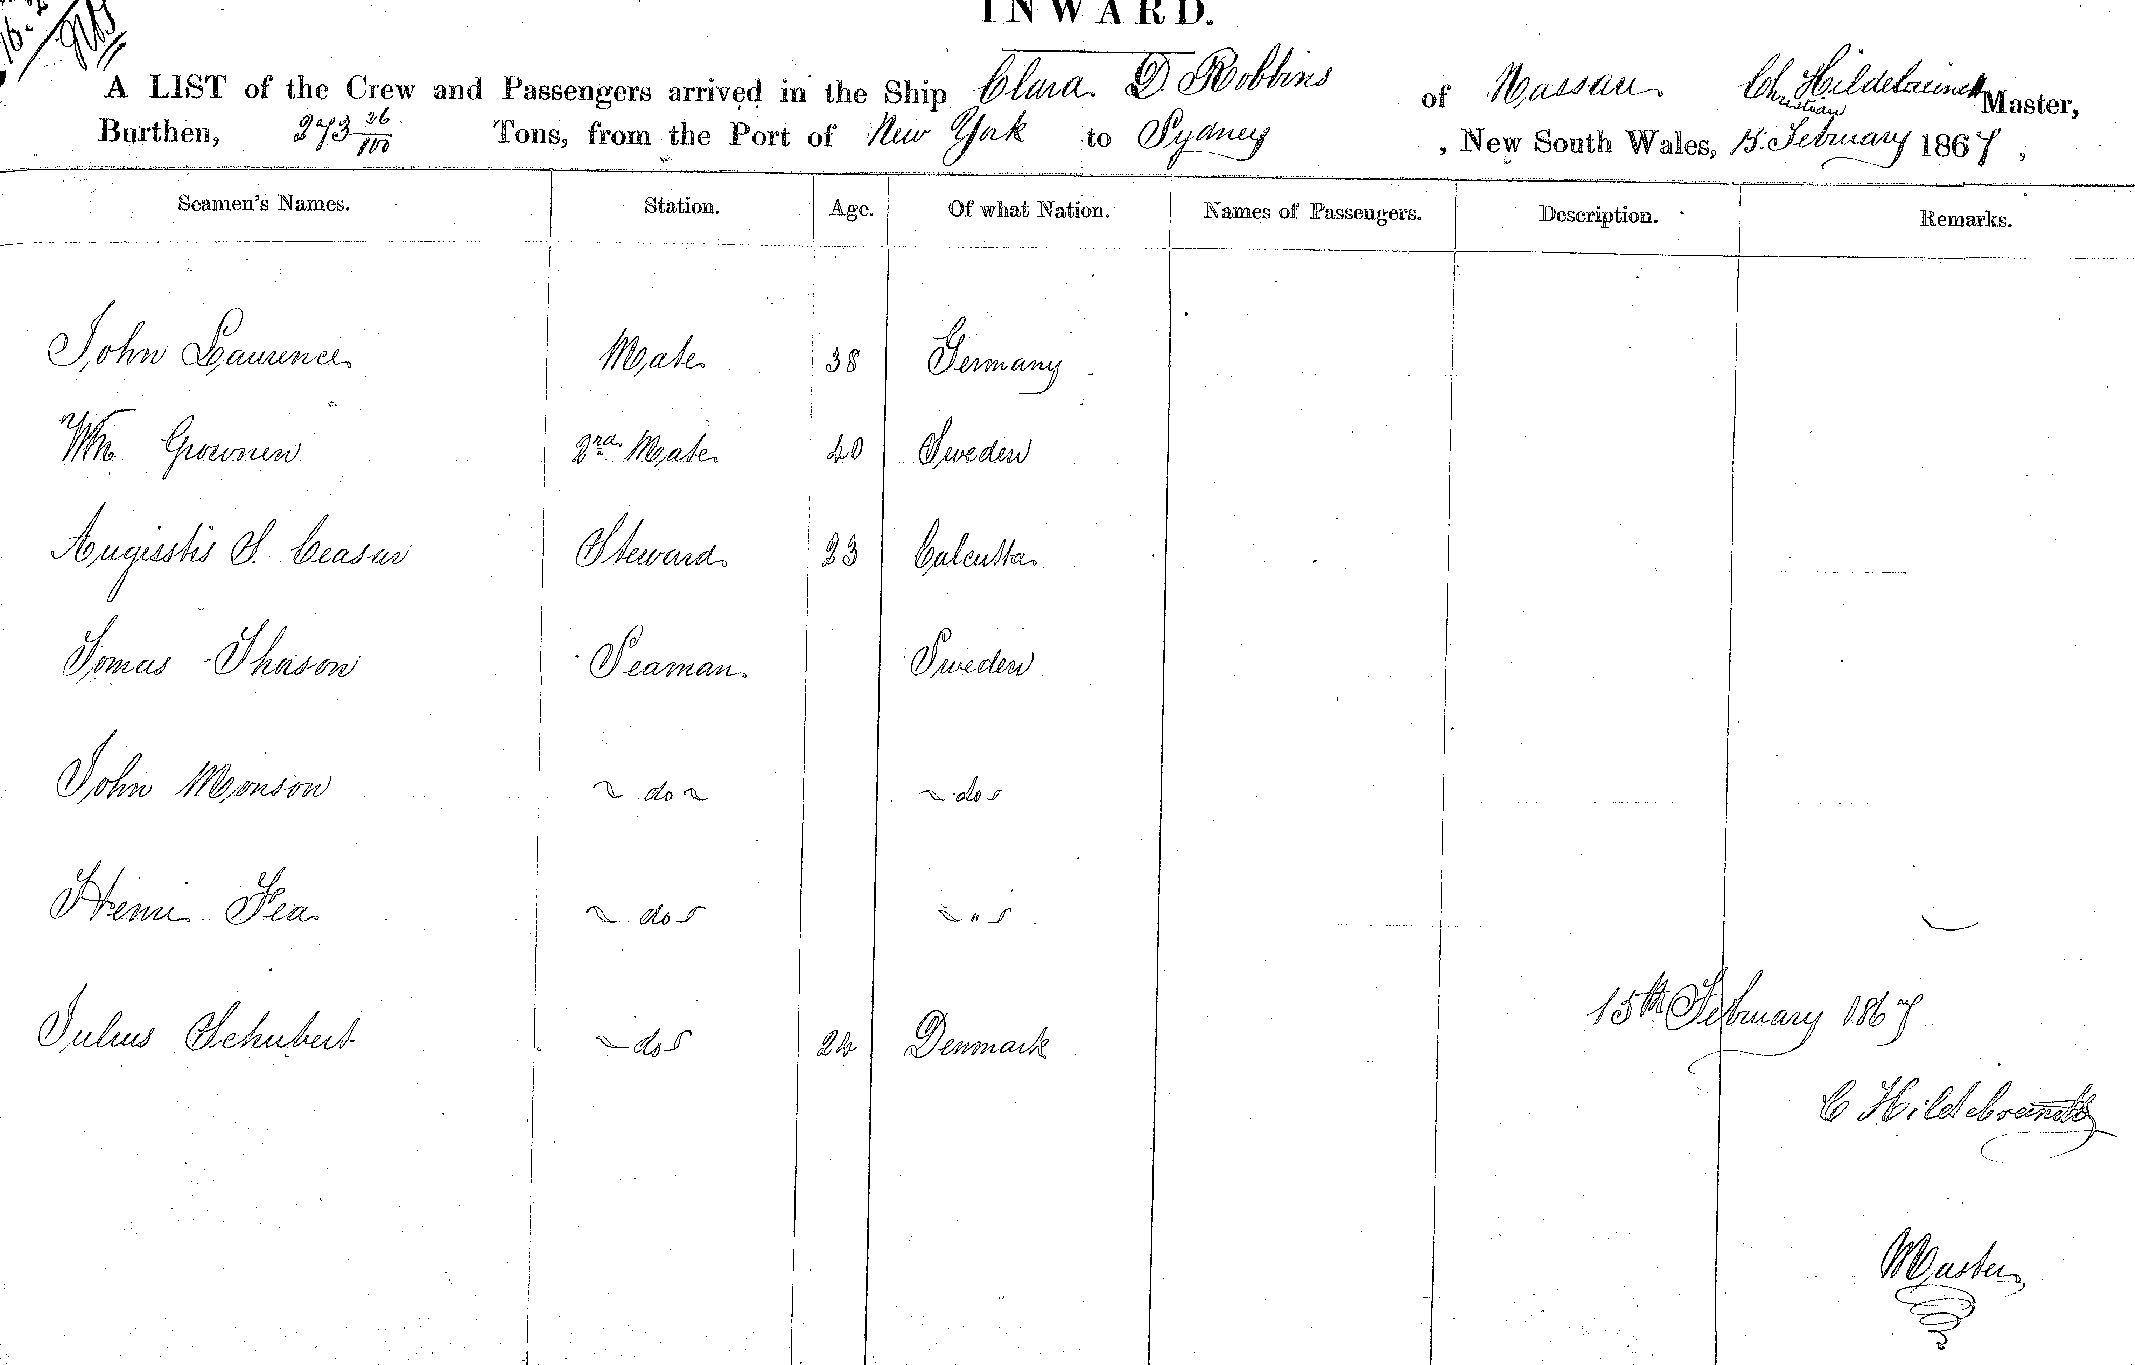 INWARD.
A LIST of the Crew and Passengers arrived in the Ship Clara D Robbins of Nassau Ch Hildebrandt Master,
Christian
Burthen, 273 36/100 Tons, from the Port of New York to Sydney, New South Wales, 15 February 1867,
Seamen's Names. Station. Age. Of what Nation. Names of Passengers. Description. Remarks.
John Laurence Mate 38 Germany
Wm Grownen 2nd Mate 40 Sweden
Augisstis S. Ceasar Steward 23 Calcutta
Tomas Thason Seaman Sweden
John Monson do do
Henri Fea do "
15th February 1867
Julius Schubert do 24 Denmark
C Hildebrandt
Master